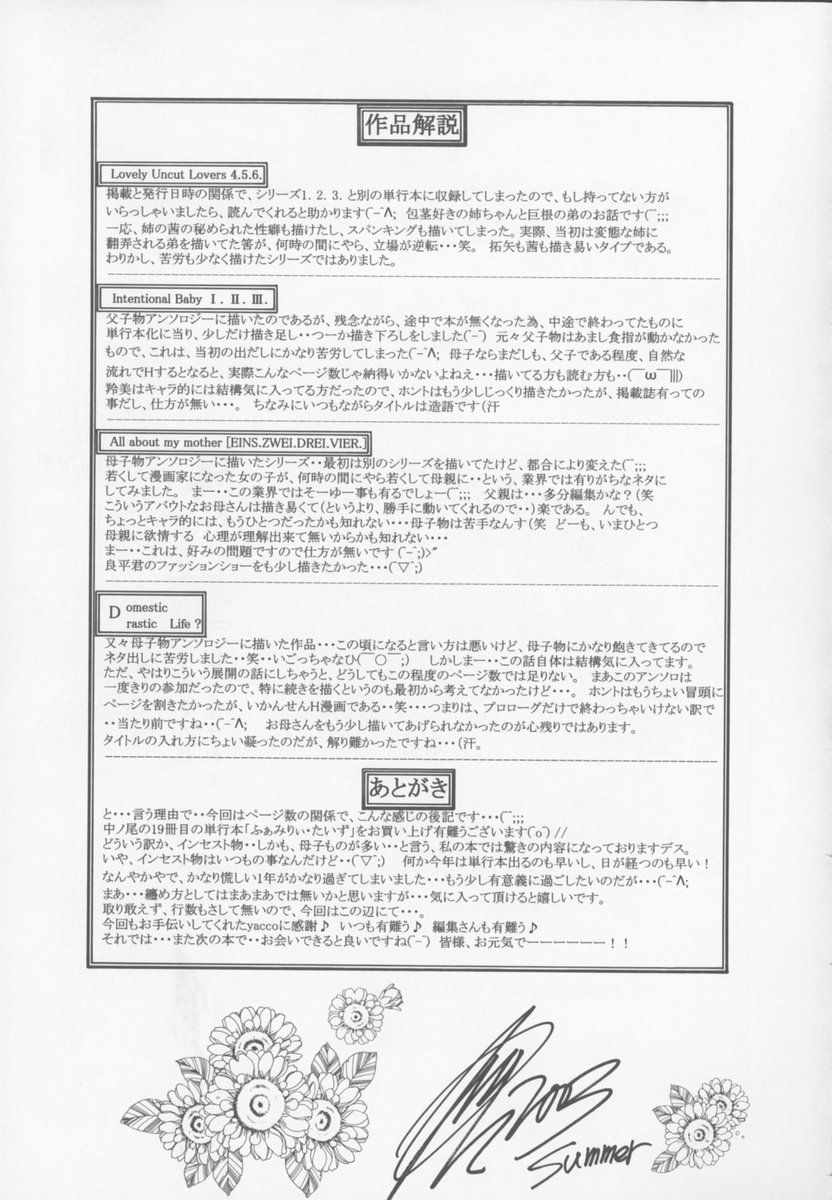 作品解説
Lovely Uncut Lovers 4.5.6.
掲載と発行日時の関係で、シリーズ1.2.3.と別の単行本に収録してしまったので、もし持ってない方が
いらっしゃいましたら、読んでくれると助かります(ˉ-ˉΛ;　包茎好きの姉ちゃんと巨根の弟のお話です(ˉˉ;;;
一応、姉の茜の秘められた性癖も描けたし、スパンキングも描いてしまった。実際、当初は変態な姉に
翻弄される弟を描いてた筈が、何時の間にやら、立場が逆転・・・笑。　拓矢も茜も描き易いタイプである。
わりかし、苦労も少なく描けたシリーズではありました。
Intentional Baby Ⅰ.Ⅱ.Ⅲ.
父子物アンソロジーに描いたのであるが、残念ながら、途中で本が無くなった為、中途で終わってたものに
単行本化に当り、少しだけ描き足し・・つーか描き下ろしをしました(ˉ-ˉ)　元々父子物はあまし食指が動かなかった
もので、これは、当初の出だしにかなり苦労してしまった(ˉ-ˉΛ;　母子ならまだしも、父子である程度、自然な
流れでHするとなると、実際こんなページ数じゃ納得いかないよねえ・・・描いてる方も読む方も・・(￣ω￣|||)
羚美はキャラ的には結構気に入ってる方だったので、ホントはもう少しじっくり描きたかったが、掲載誌有っての
事だし、仕方が無い・・・。　ちなみにいつもながらタイトルは造語です（汗
All about my mother [EINS.ZWEI.DREI.VIER.]
母子物アンソロジーに描いたシリーズ・・最初は別のシリーズを描いてたけど、都合により変えた(ˉˉ;;;
若くして漫画家になった女の子が、何時の間にやら若くして母親に・・という、業界では有りがちなネタに
してみました。　まー・・この業界ではそーゆー事も有るでしょー(ˉˉ;;;　父親は・・・多分編集かな？(笑
こういうアバウトなお母さんは描き易くて(というより、勝手に動いてくれるので・・)楽である。　んでも、
ちょっとキャラ的には、もうひとつだったかも知れない・・・母子物は苦手なんす(笑　どーも、いまひとつ
母親に欲情する　心理が理解出来て無いからかも知れない・・・
まー・・これは、好みの問題ですので仕方が無いです (ˉ-ˉ;)>"
良平君のファッションショーをも少し描きたかった・・・(ˉ▽ˉ;)
Domestic
Drastic Life ?
又々母子物アンソロジーに描いた作品・・・この頃になると言い方は悪いけど、母子物にかなり飽きてきてるので
ネタ出しに苦労しました・・笑・・いごっちゃなひ(￣○￣;)　しかしまー・・この話自体は結構気に入ってます。
ただ、やはりこういう展開の話にしちゃうと、どうしてもこの程度のページ数では足りない。　まあこのアンソロは
一度きりの参加だったので、特に続きを描くというのも最初から考えてなかったけど・・・。　ホントはもうちょい冒頭に
ページを割きたかったが、いかんせんH漫画である・・笑・・・つまりは、プロローグだけで終わっちゃいけない訳で
・・当たり前ですね・・(ˉ-ˉΛ;　お母さんをもう少し描いてあげられなかったのが心残りではあります。
タイトルの入れ方にちょい凝ったのだが、解り難かったですね・・・（汗。
あとがき
と・・・言う理由で・・今回はページ数の関係で、こんな感じの後記です・・・(ˉˉ;;;
中ノ尾の19冊目の単行本「ふぁみりぃ・たいず」をお買い上げ有難うございます(ˉoˉ)//
どういう訳か、インセスト物・・しかも、母子ものが多い・・と言う、私の本では驚きの内容になっておりますデス。
いや、インセストはいつもの事なんだけど・・(ˉ▽ˉ;)　何か今年は単行本出るのも早いし、日が経つのも早い！
なんやかやで、かなり慌しい1年がかなり過ぎてしまいました・・・もう少し有意義に過ごしたいのだが・・・(ˉ-ˉΛ;
まあ・・・纏め方としてはまあまあでは無いかと思いますが・・・気に入って頂けると嬉しいです。
取り敢えず、行数もさして無いので、今回はこの辺にて・・・。
今回もお手伝いしてくれたyaccoに感謝♪　いつも有難う♪　編集さんも有難う♪
それでは・・・また次の本で・・お会いできると良いですね(ˉ-ˉ)　皆様、お元気でーーーーーー！！
2003
Summer